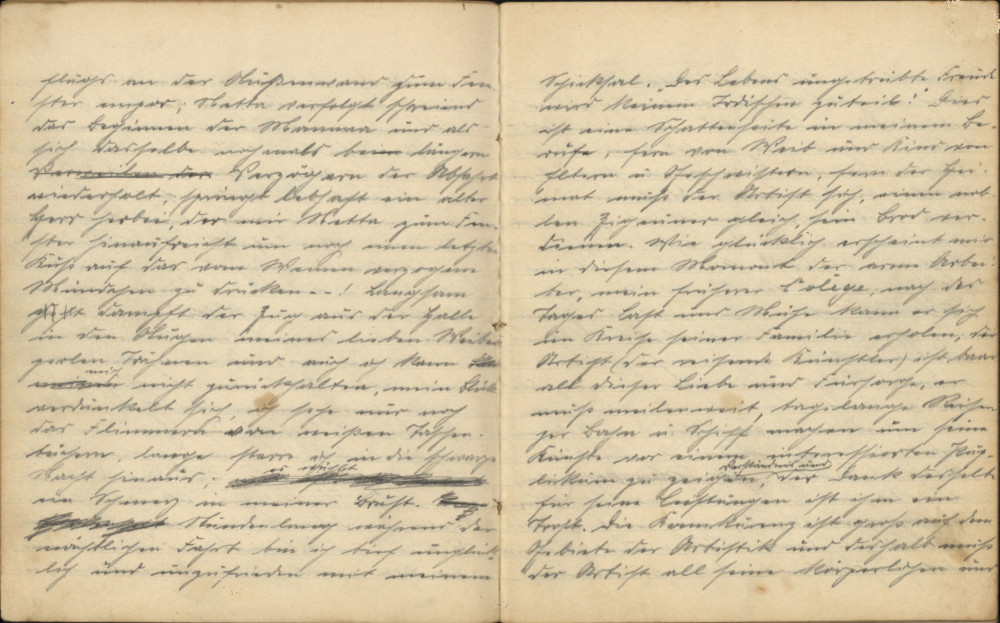 flugs an der Außenwand zum Fen
ster empor; Netta verfolgt schreiend
das Beginnen der Mamma und als
sich dasselbe nochmals beim längern
Verweilen der Verzögern der Abfahrt
wiederholt, springt lebhaft ein alter
Herr herbei, der mir Netta zum Fen-
ster hinaufreicht um noch einen letzten
Kuß auf das vom Weinen verzogene
Mündchen zu drücken--! Langsam
dampft der Zug aus der Halle
in den Augen meines lieben Weibes
perlen Tränen und auch ich kann
mich nicht zurückhalten, mein Blick
verdunkelt sich, ich sehe nur noch
das Flimmern von weißen Taschen-
tüchern, lange starre ich in die schwarze
Nacht hinaus, es wühlt
ein Schmerz in meiner Brust.
Stundenlang während der
nächtlichen Fahrt bin ich tief unglück
lich und unzufrieden mit meinem
Schicksal. Des Lebens ungetrübte Freude
wird keinem Irdischen zuteil!" Dies
ist eine Schattenseite in meinem Be-
rufe, fern von Weib und Kind von
Eltern u Geschwistern, fern der Hei-
mat muß der Artist sich, einem
Zigeuner gleich, sein Brod ver-
dienen. Wie glücklich erscheint mir
in diesem Moment der arme Arbei-
ter, mein früherer Colege, nach des
Tages Last und Mühe kann er sich
im Kreise seiner Familie erholen, der
Artist (der reisende Künstler) ist baar
all dieser Liebe und Fürsorge, er
muß meilenweit, tagelange Reisen
per Bahn u Schiff machen um seine
Künste vor einem interessierten Pub-
likum zu zeigen, Verständnis und der Dank desselben
für seine Leistungen ist ihm ein
Trost. Die Konkurenz ist groß auf dem
Gebiete der Artistik und deshalb muß
der Artist all seine körperlichen und